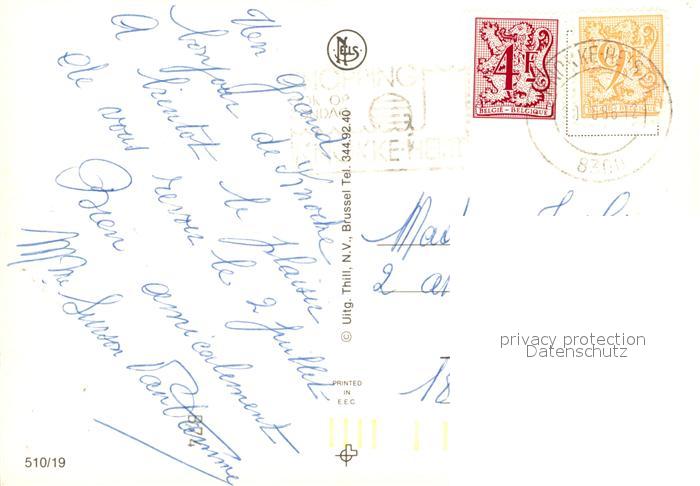 Un grand
bonjour de Knocke
A bientôt le plaisir
de vous revoir le 2 juillet
Bien amicalement
Mme
NELS
© Uitg. Thill, N.V., Brussel Tel. 344.92.40
PRINTED
IN
E.E.C.
510/19
SHOPPING
OP
KNOKKE-HEIST
4F
BELGIË-BELGIQUE
2
BELGIË-BELGIQUE
KNOKKE-HEIST
8300
2
privacy protection
Datenschutz